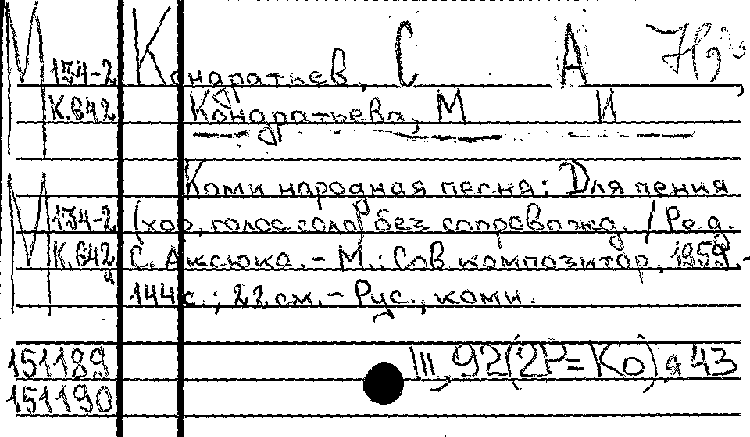 М 154-2 Кондратьев, С А
К.642 Кондратьева, М И
Коми народная песня: Для пения
М 154-2 (хор, голос соло) без сопровожд. / Ред.
К.642 С. Аксюка. - М.: Сов. композитор, 1959. -
144 с.; 22 см. - Рус., коми.
151189 III, 92(2Р=Ко), я 43
151190